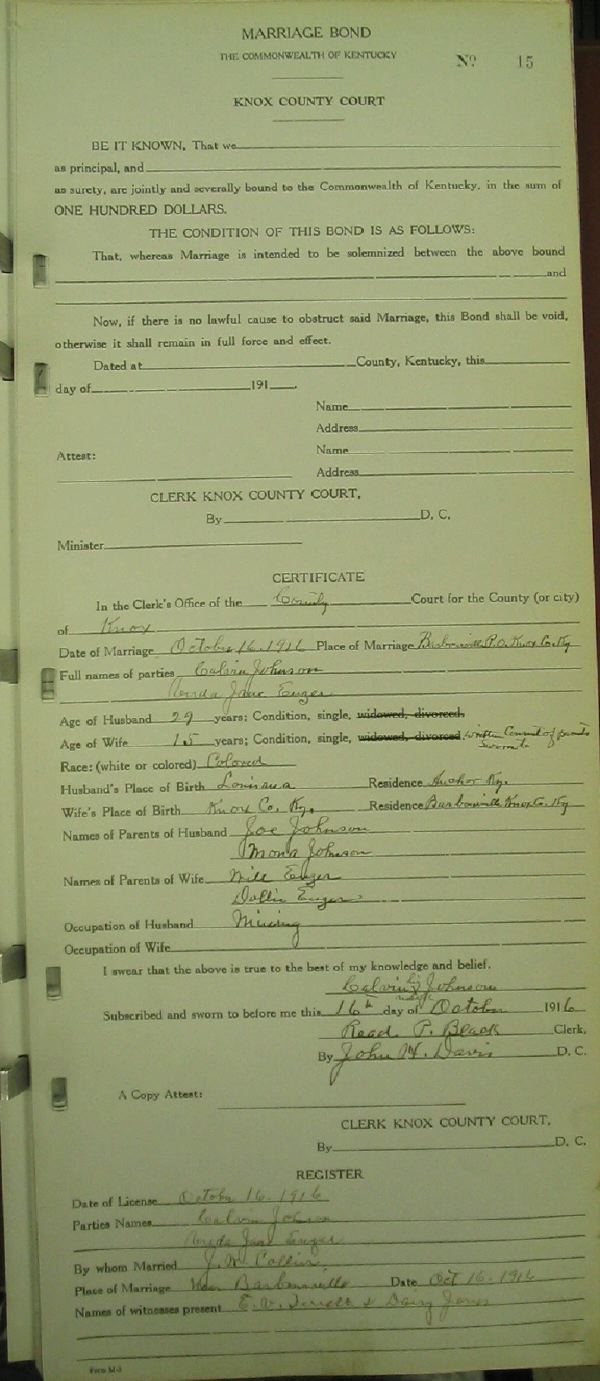 MARRIAGE BOND
THE COMMONWEALTH OF KENTUCKY
No 15
KNOX COUNTY COURT
BE IT KNOWN, That we
as principal, and
as surety, are jointly and severally bound to the Commonwealth of Kentucky, in the sum of
ONE HUNDRED DOLLARS.
THE CONDITION OF THIS BOND IS AS FOLLOWS:
That, whereas Marriage is intended to be solemnized between the above bound
and
Now, if there is no lawful cause to obstruct said Marriage, this Bond shall be void,
otherwise it shall remain in full force and effect.
Dated at County, Kentucky, this
day of 191 .
Name
Address
Attest: Name
Address
CLERK KNOX COUNTY COURT,
By D. C.
Minister
CERTIFICATE
In the Clerk's Office of the County Court for the County (or city)
of Knox
Date of Marriage October 16, 1916 Place of Marriage Barbourville P.O. Knox Co. Ky
Full names of parties Calvin Johnson
Jane
Age of Husband 29 years; Condition, single, widowed, divorced.
Age of Wife 15 years; Condition, single, widowed, divorced, written Consent of parents
Race: (white or colored) Colored
Husband's Place of Birth Residence Anchor Ky.
Wife's Place of Birth Knox Co. Ky. Residence Barbourville Knox Co. Ky
Names of Parents of Husband Joe Johnson
Johnson
Names of Parents of Wife Will
Dollie
Occupation of Husband Mining
Occupation of Wife
I swear that the above is true to the best of my knowledge and belief.
Calvin his x mark Johnson
Subscribed and sworn to before me this 16th day of October 1916
Read P. Black Clerk,
By John H. Davis D. C.
A Copy Attest:
CLERK KNOX COUNTY COURT,
By D. C.
REGISTER
Date of License October 16, 1916
Parties Names Calvin Johnson
Jane
By whom Married J. W. Collins,
Place of Marriage Near Barbourville Date Oct 16, 1916
Names of witnesses present E. W. & Daisy Jones
Form M-3